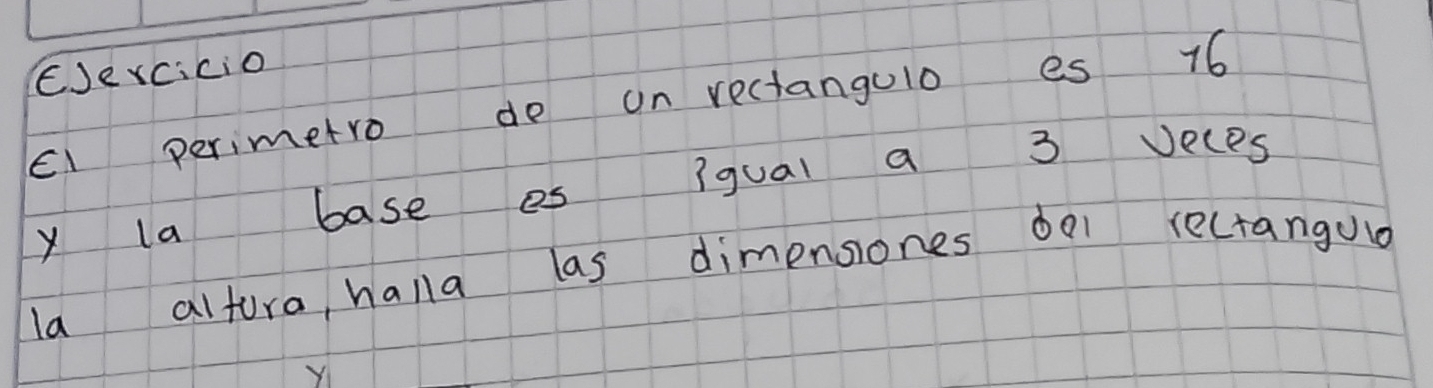 EJercicio
El perimetro de un rectangulo es 16
y la base es igual a 3 veces
la altura, halla las dimensiones del rectangulo
y